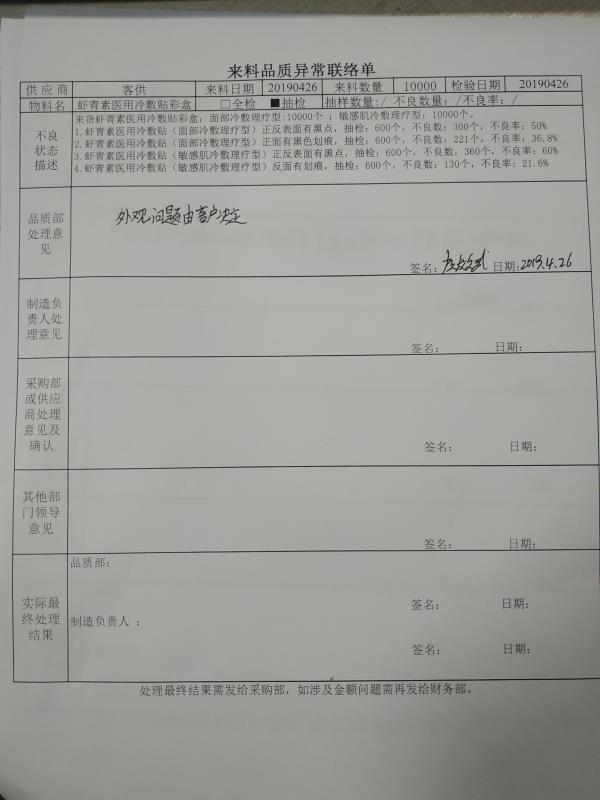 来料品质异常联络单
供应商 客供 来料日期 20190426 来料数量 10000 检验日期 20190426
物料名 虾青素医用冷敷贴彩盒 □全检 ■抽检 抽样数量:/ 不良数量: /不良率: /
不良状态描述
来货虾青素医用冷敷贴彩盒; 面部冷敷理疗型:10000个 ; 敏感肌冷敷理疗型; 10000个。
1.虾青素医用冷敷贴（面部冷敷理疗型）正反表面有黑点, 抽检: 600个, 不良数: 300个, 不良率: 50%
2.虾青素医用冷敷贴（面部冷敷理疗型）正面有黑色划痕, 抽检: 600个, 不良数: 221个, 不良率: 36.8%
3.虾青素医用冷敷贴（敏感肌冷敷理疗型）正反表面有黑点, 抽检: 600个, 不良数: 360个, 不良率: 60%
4.虾青素医用冷敷贴（敏感肌冷敷理疗型）反面有划痕, 抽检: 600个, 不良数: 130个, 不良率: 21.6%
品质部处理意见
外观问题由客户决定
签名: 日期: 2019.4.26
制造负责人处理意见
签名: 日期:
采购部或供应商处理意见及确认
签名: 日期:
其他部门领导意见
签名: 日期:
实际最终处理结果
品质部:
签名: 日期:
制造负责人 :
签名: 日期:
处理最终结果需发给采购部, 如涉及金额问题需再发给财务部。